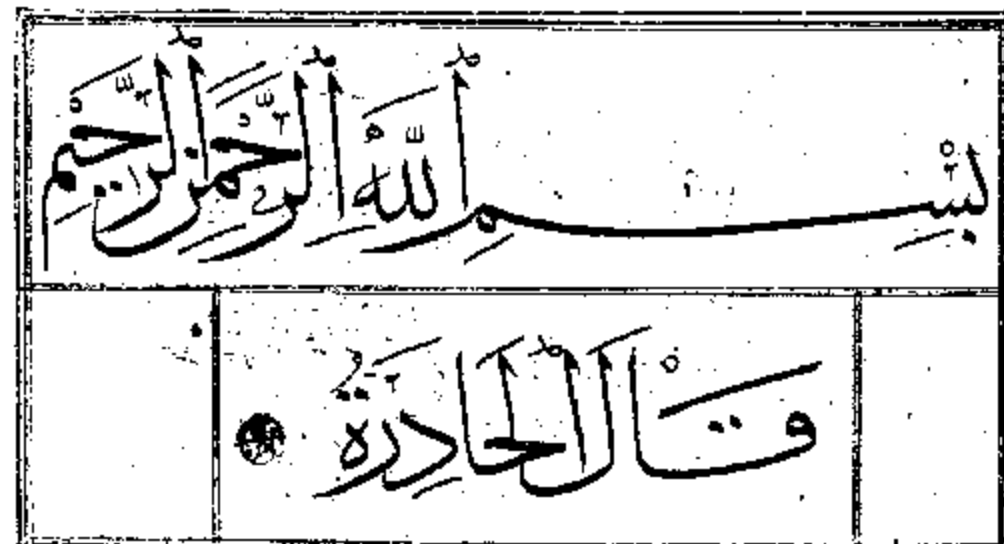 بِسْمِ ٱللَّهِ ٱلرَّحْمَٰنِ ٱلرَّحِيمِ
قَالَ ٱلْحَادِرَةُ